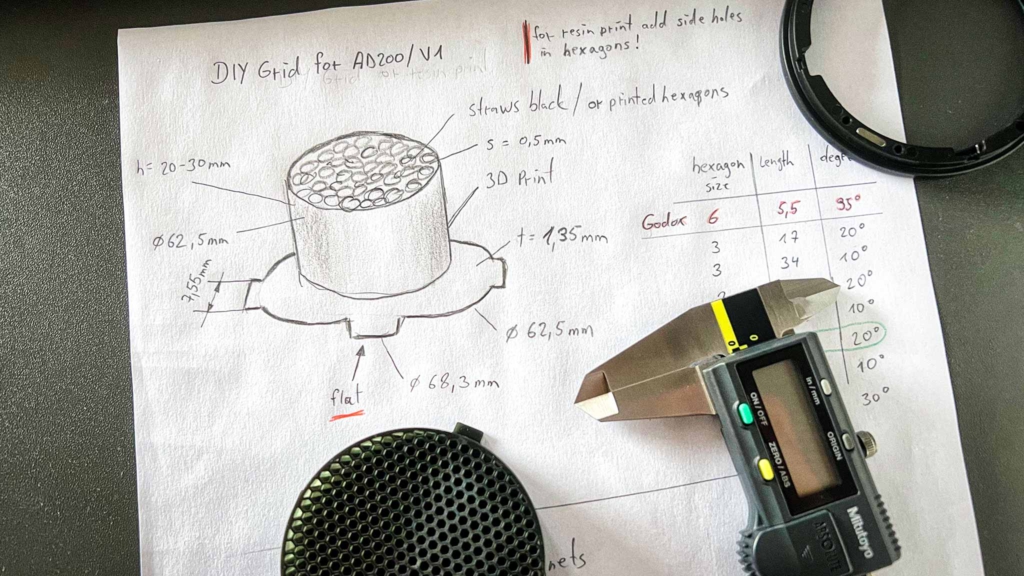 DIY Grid for AD200/V1
for resin print add side holes
in hexagons!
straws black / or printed hexagons
s = 0,5mm
3D Print
h= 20-30mm
ø62,5mm
7,55mm
t = 1,35mm
ø 62,5mm
ø 68,3mm
flat
hexagon size length
Godox 6 5,5 95°
3 17 20°
3 34 10°
20°
10°
20°
10°
30°
nets
in/mm
ON/OFF
ORIGIN
ZERO/ABS
Mitutoyo